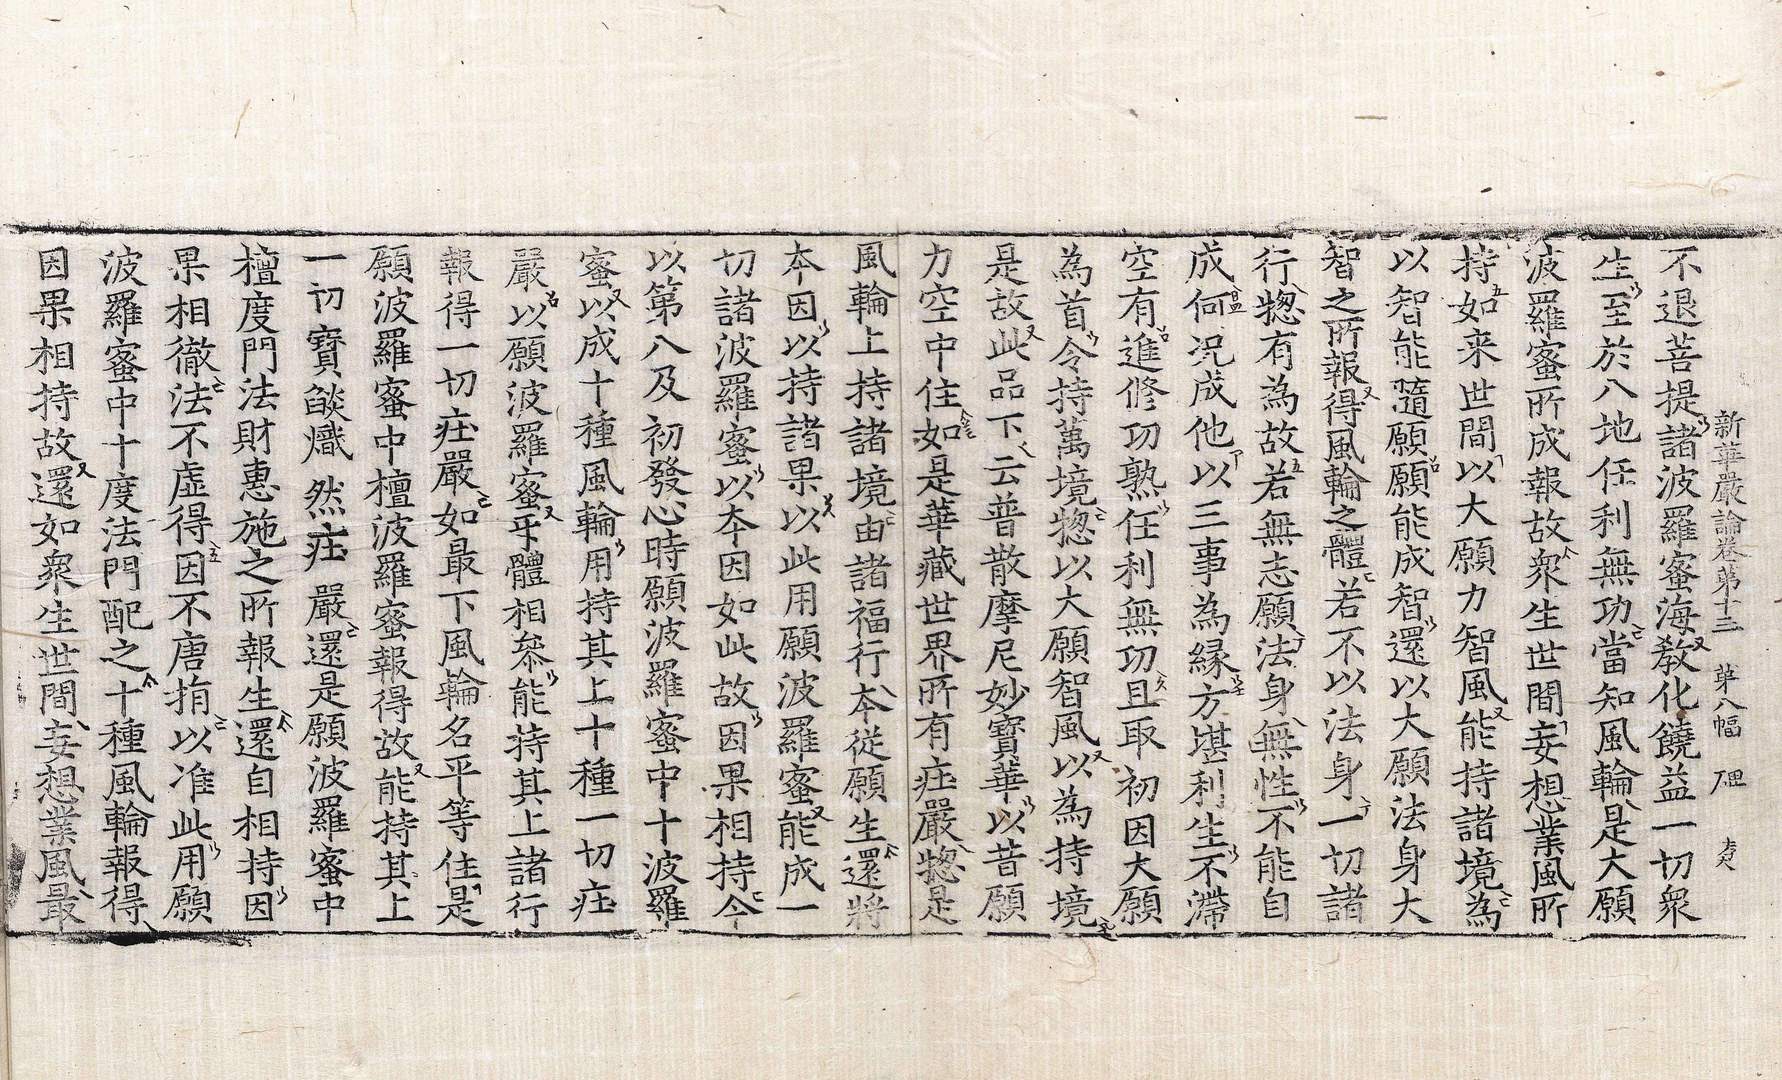 新華嚴論卷第十三 第八幅
不退菩提諸波羅蜜海教化饒益一切衆
生至於八地任利無功當知風輪是大願
波羅蜜所成報故衆生世間妄想業風所
持如来世間以大願力智風能持諸境為
以智能隨願願能成智還以大願法身大
智之所報得風輪之體若不以法身一切諸
行惣有為故若無志願法身無性不能自
成何況成他以三事為緣方堪利生不滯
空有進修功熟任利無功且取初因大願
為首令持萬境惣以大願智風以為持境
是故此品下云普散摩尼妙寶華以昔願
力空中住如是華藏世界所有庄嚴惣是
風輪上持諸境由諸福行本從願生還將
本因以持諸果以此用願波羅蜜能成一
切諸波羅蜜以本因如此故因果相持令
以第八及初發心時願波羅蜜中十波羅
蜜以成十種風輪用持其上十種一切庄
嚴以願波羅蜜㸦體相叅能持其上諸行
報得一切庄嚴如最下風輪名平等住是
願波羅蜜中檀波羅蜜報得故能持其上
一切寶燄熾然庄嚴還是願波羅蜜中
檀度門法財惠施之所報生還自相持因
果相徹法不虛得因不唐捐以准此用願
波羅蜜中十度法門配之十種風輪報得
因果相持故還如衆生世間妄想業風最